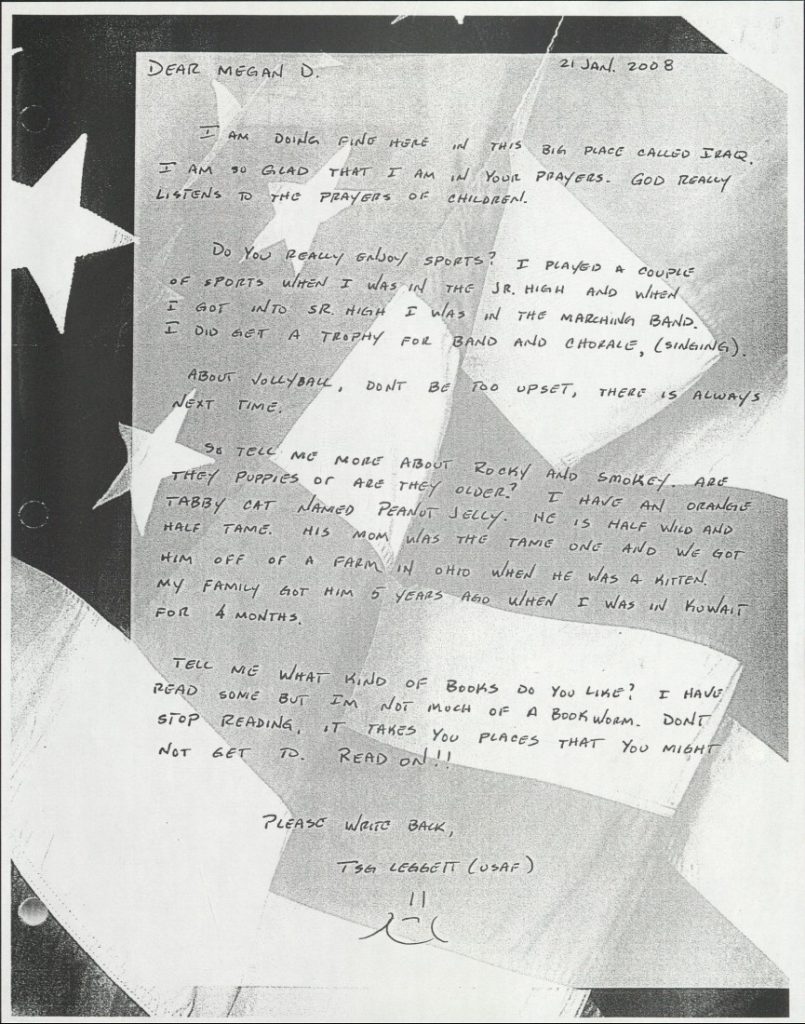 DEAR MEGAN D.
21 JAN. 2008
I AM DOING FINE HERE IN THIS BIG PLACE CALLED IRAQ.
I AM SO GLAD THAT I AM IN YOUR PRAYERS. GOD REALLY
LISTENS TO THE PRAYERS OF CHILDREN.
DO YOU REALLY ENJOY SPORTS? I PLAYED A COUPLE
OF SPORTS WHEN I WAS IN THE JR. HIGH AND WHEN
I GOT INTO SR. HIGH I WAS IN THE MARCHING BAND.
I DID GET A TROPHY FOR BAND AND CHORALE, (SINGING).
ABOUT VOLLYBALL, DONT BE TOO UPSET, THERE IS ALWAYS
NEXT TIME.
SO TELL ME MORE ABOUT ROCKY AND SMOKEY. ARE
THEY PUPPIES OR ARE THEY OLDER? I HAVE AN ORANGE
TABBY CAT NAMED PEANUT JELLY. HE IS HALF WILD AND
HALF TAME. HIS MOM WAS THE TAME ONE AND WE GOT
HIM OFF OF A FARM IN OHIO WHEN HE WAS A KITTEN.
MY FAMILY GOT HIM 5 YEARS AGO WHEN I WAS IN KUWAIT
FOR 4 MONTHS.
TELL ME WHAT KIND OF BOOKS DO YOU LIKE? I HAVE
READ SOME BUT I'M NOT MUCH OF A BOOKWORM. DONT
STOP READING, IT TAKES YOU PLACES THAT YOU MIGHT
NOT GET TO. READ ON!!
PLEASE WRITE BACK,
TSG LEGGETT (USAF)